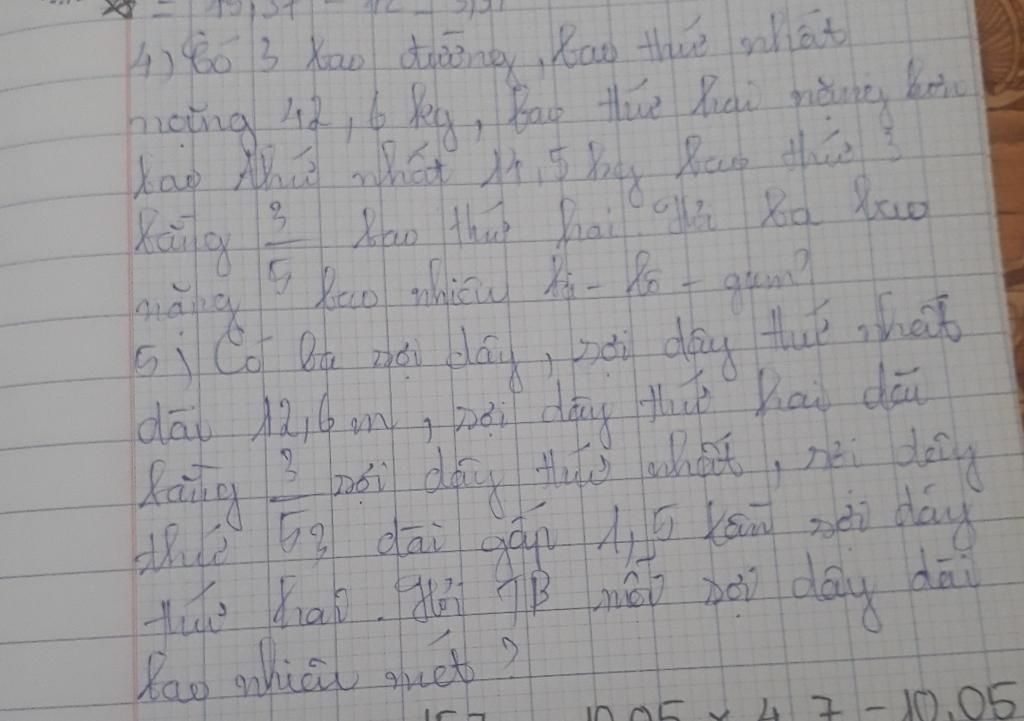 = 45,37 - 12 - 5,37
4) Có 3 bao đường, bao thứ nhất
nặng 42,6 kg, bao thứ hai nặng hơn
bao thứ nhất 14,5 kg bao thứ 3
bằng 3/5 bao thứ hai. Hỏi ba bao
nặng bao nhiêu ki-lô-gam?
5) Có ba sợi dây, sợi dây thứ nhất
dài 12,6 m, sợi dây thứ hai dài
bằng 3/5 sợi dây thứ nhất, sợi dây
thứ 3 dài gấp 1,5 lần sợi dây
thứ hai. Hỏi TB mỗi sợi dây dài
bao nhiêu mét?
10,05 x 4,7 - 10,05